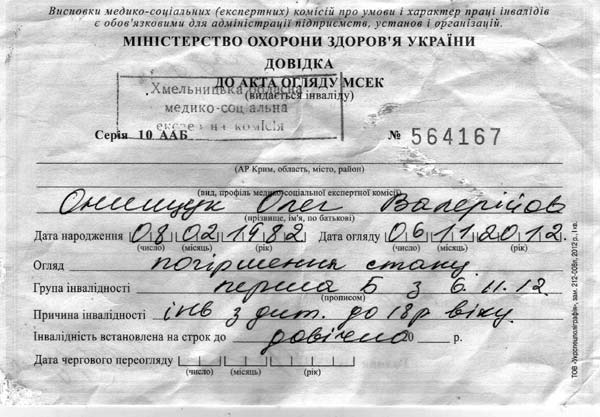 Висновки медико-соціальних (експертних) комісій про умови і характер праці інвалідів
є обов'язковими для адміністрації підприємств, установ і організацій.
МІНІСТЕРСТВО ОХОРОНИ ЗДОРОВ'Я УКРАЇНИ
ДОВІДКА
ДО АКТА ОГЛЯДУ МСЕК
(видається інваліду)
Хмельницька обласна
медико-соціальна
експертна комісія
Серія 10 ААБ № 564167
(АР Крим, область, місто, район)
(вид, профіль медико-соціальної експертної комісії)
Онищук Олег Валерійов
(прізвище, ім'я, по батькові)
Дата народження 08 02 1982 Дата огляду 06 11 2012
(число) (місяць) (рік) (число) (місяць) (рік)
Огляд погіршення стану
Група інвалідності перша Б з 6.11.12.
(прописом)
Причина інвалідності інв з дит. до 18р віку
Інвалідність встановлена на строк до довічно 0 р.
Дата чергового переогляду
(число) (місяць) (рік)
ТОВ «Укрспецполіграфія», зам. 212-008п, 2012 р., І кв.